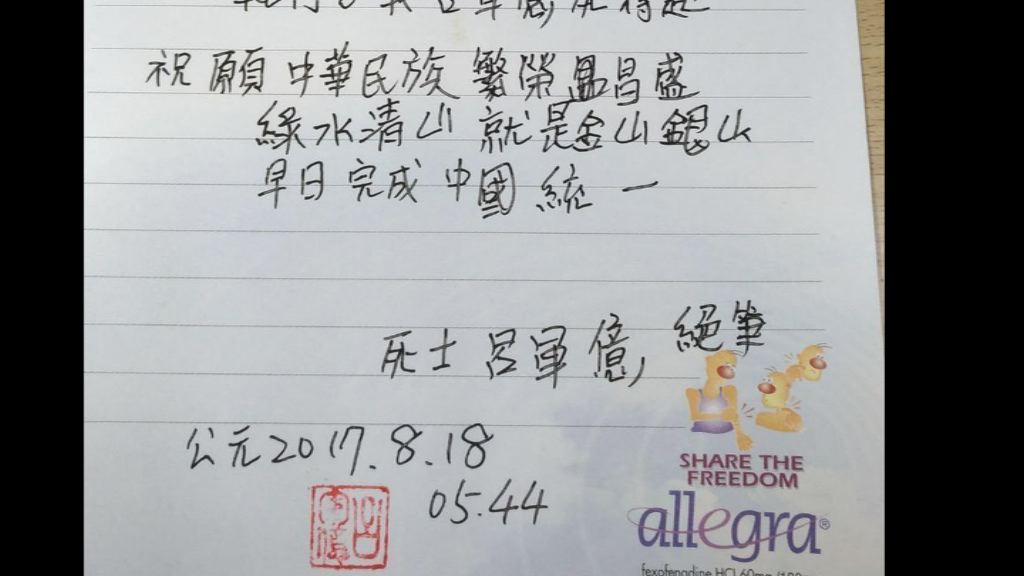 祝願中華民族繁榮昌盛
綠水清山就是金山銀山
早日完成中國統一
死士呂軍億,絕筆
公元2017.8.18
05.44
SHARE THE
FREEDOM
allegra®
fexofenadine HCl 60mg